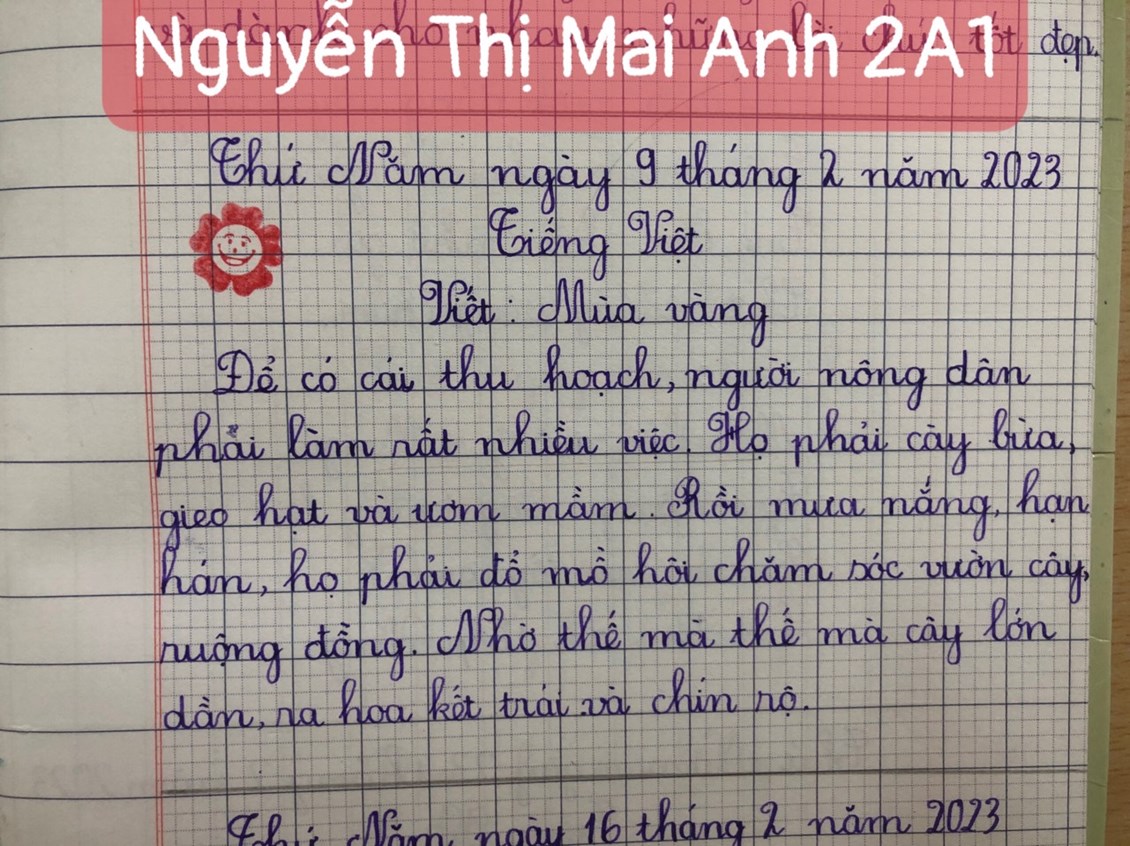 Nguyễn Thị Mai Anh 2A1
tốt đẹp.
Thứ Năm ngày 9 tháng 2 năm 2023
Tiếng Việt
Viết: Mùa vàng
Để có cái thu hoạch, người nông dân
phải làm rất nhiều việc. Họ phải cày bừa,
gieo hạt và ươm mầm. Rồi mưa nắng, hạn
hán, họ phải đổ mồ hôi chăm sóc vườn cây,
ruộng đồng. Nhờ thế mà thế mà cây lớn
dần, ra hoa kết trái và chín rộ.
Thứ Năm ngày 16 tháng 2 năm 2023